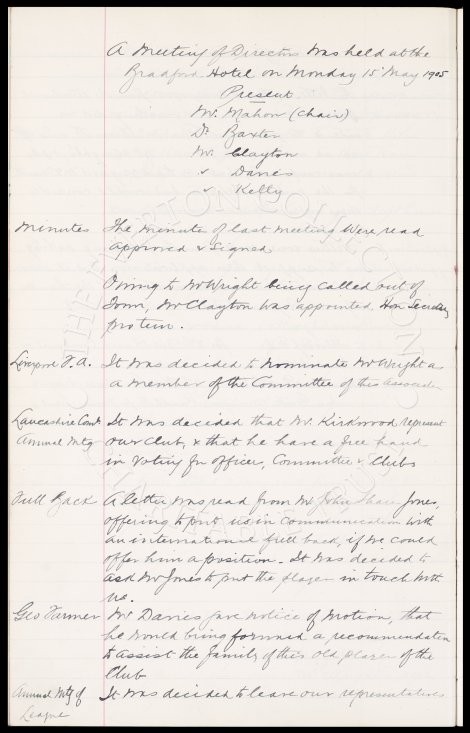 A Meeting of Directors was held at the
Bradford Hotel on Monday 15 May 1905
Present
Mr. Mahon (Chair)
Dr Baxter
Mr. Clayton
" Davies
" Kelly
Minutes The minutes of last meeting were read
approved & signed
Owing to Mr Wright being called out of
Town, Mr Clayton was appointed Hon Secretary
protem.
Liverpool F.A. It was decided to nominate Mr Wright as
a member of the Committee of this Association
Lancashire Comb It was decided that Mr. Kirkwood represent
Annual Mtg our Club, & that he have a free hand
in voting for Officers, Committee & Clubs
Full Back A letter was read from Mr John Jones,
offering to put us in communication with
an international full back, if we could
offer him a position. It was decided to
ask Mr Jones to put the player in touch with
us.
Geo Farmer Mr Davies gave notice of Motion, that
he would bring forward a recommendation
to assist the family of this old player of the
Club
Annual Mtg of It was decided to leave our representatives
League
THE EVERTON COLLECTION